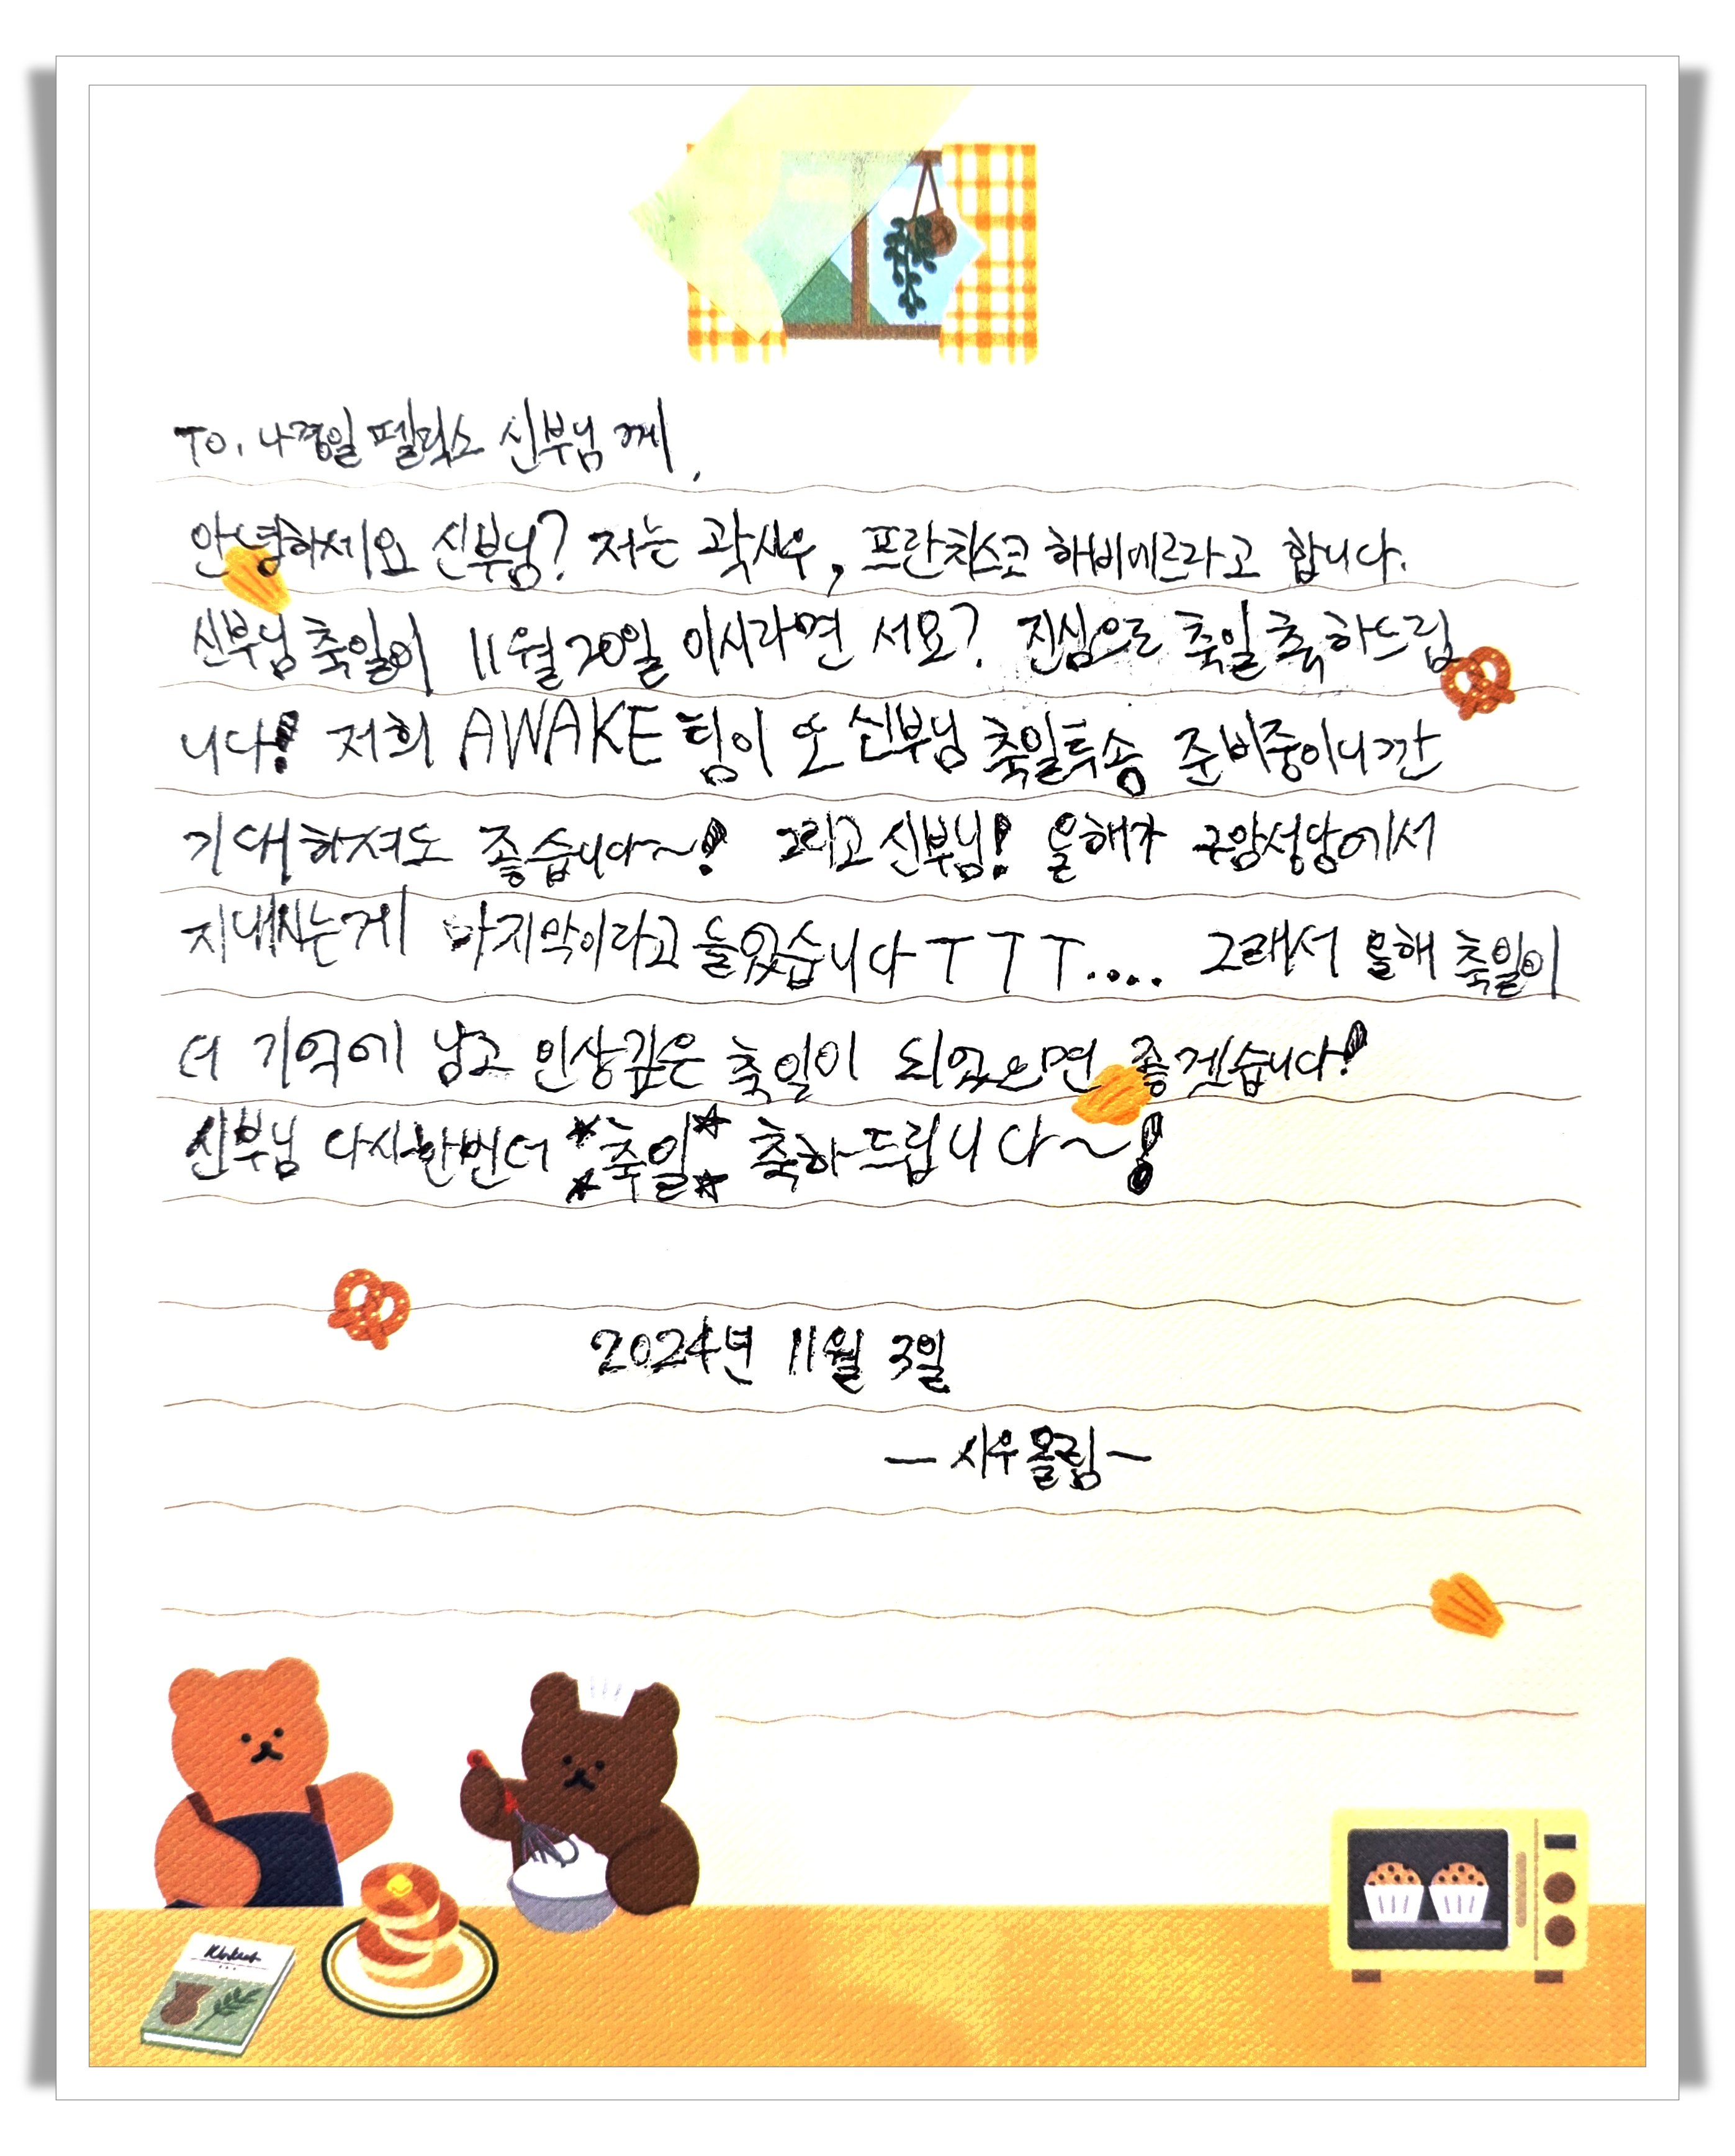 To. 나경일 펠릭스 신부님께,
안녕하세요 신부님? 저는 곽시우, 프란치스코 하비에르라고 합니다.
신부님 축일이 11월 20일 이시라면서요? 진심으로 축일 축하드립
니다! 저희 AWAKE 팀이 또 신부님 축일특송 준비중이니깐
기대하셔도 좋습니다~! 그리고 신부님! 올해가 구암성당에서
지내시는게 마지막이라고 들었습니다 ㅜㅜㅜ.... 그래서 올해 축일이
더 기억에 남고 인상깊은 축일이 되었으면 좋겠습니다!
신부님 다시한번더 **축일** 축하드립니다~!
2024년 11월 3일
- 시우올림 -